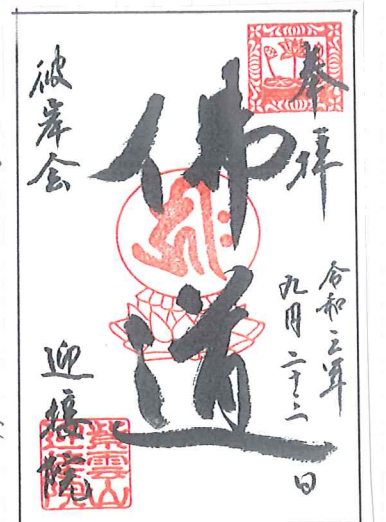 奉拝
令和三年
九月二十三日
佛道
彼岸会
迎接院
紫雲山
迎接院